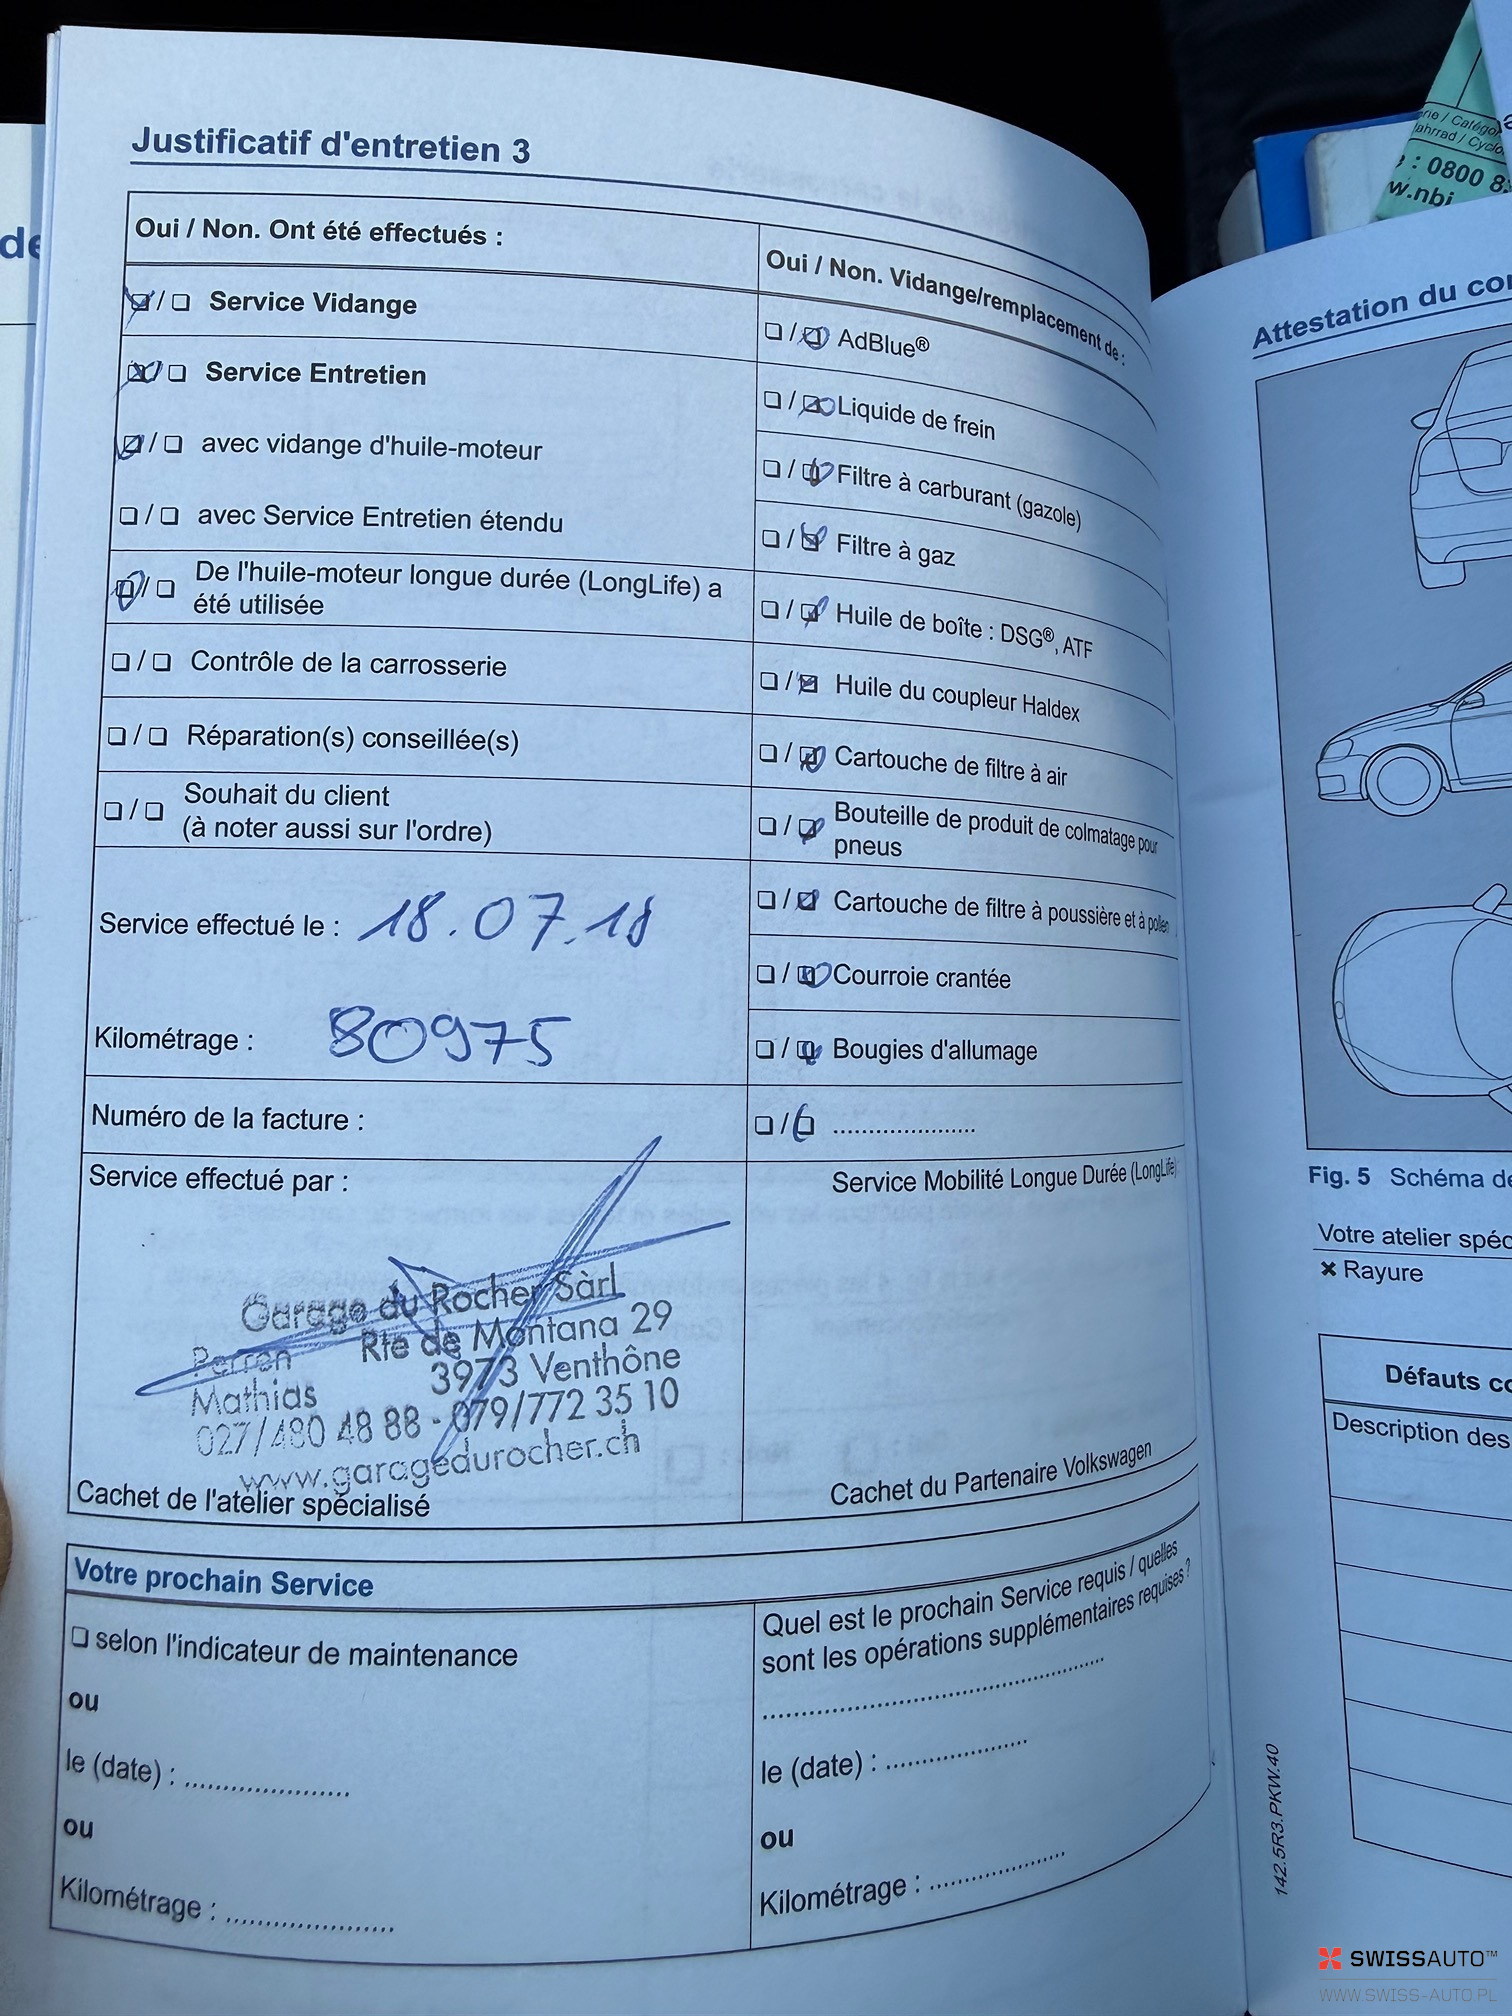 Justificatif d'entretien 3
Oui / Non. Ont été effectués :
Service Vidange
Service Entretien
avec vidange d'huile-moteur
avec Service Entretien étendu
De l'huile-moteur longue durée (LongLife) a
été utilisée
Contrôle de la carrosserie
Réparation(s) conseillée(s)
Souhait du client
(à noter aussi sur l'ordre)
Service effectué le : 18.07.18
Kilométrage : 80975
Numéro de la facture :
Service effectué par :
Garage du Rocher Sàrl
Rte de Montana 29
Perren
3973 Venthône
Mathias
027/480 48 88 - 079/772 35 10
www.garagedurocher.ch
Cachet de l'atelier spécialisé
Oui / Non. Vidange/remplacement de :
AdBlue®
Liquide de frein
Filtre à carburant (gazole)
Filtre à gaz
Huile de boîte : DSG®, ATF
Huile du coupleur Haldex
Cartouche de filtre à air
Bouteille de produit de colmatage pour
pneus
Cartouche de filtre à poussière et à pollen
Courroie crantée
Bougies d'allumage
......................
Service Mobilité Longue Durée (LongLife)
Cachet du Partenaire Volkswagen
Votre prochain Service
selon l'indicateur de maintenance
ou
le (date) : ......................
ou
Kilométrage : ......................
Quel est le prochain Service requis / quelles
sont les opérations supplémentaires requises ?
......................
le (date) : ......................
ou
Kilométrage : ......................
Attestation du
Fig. 5 Schéma
Votre atelier
✖ Rayure
Défauts
Description des
142.5R3.PKW.40
: 0800
SWISSAUTO™
WWW.SWISS-AUTO.PL